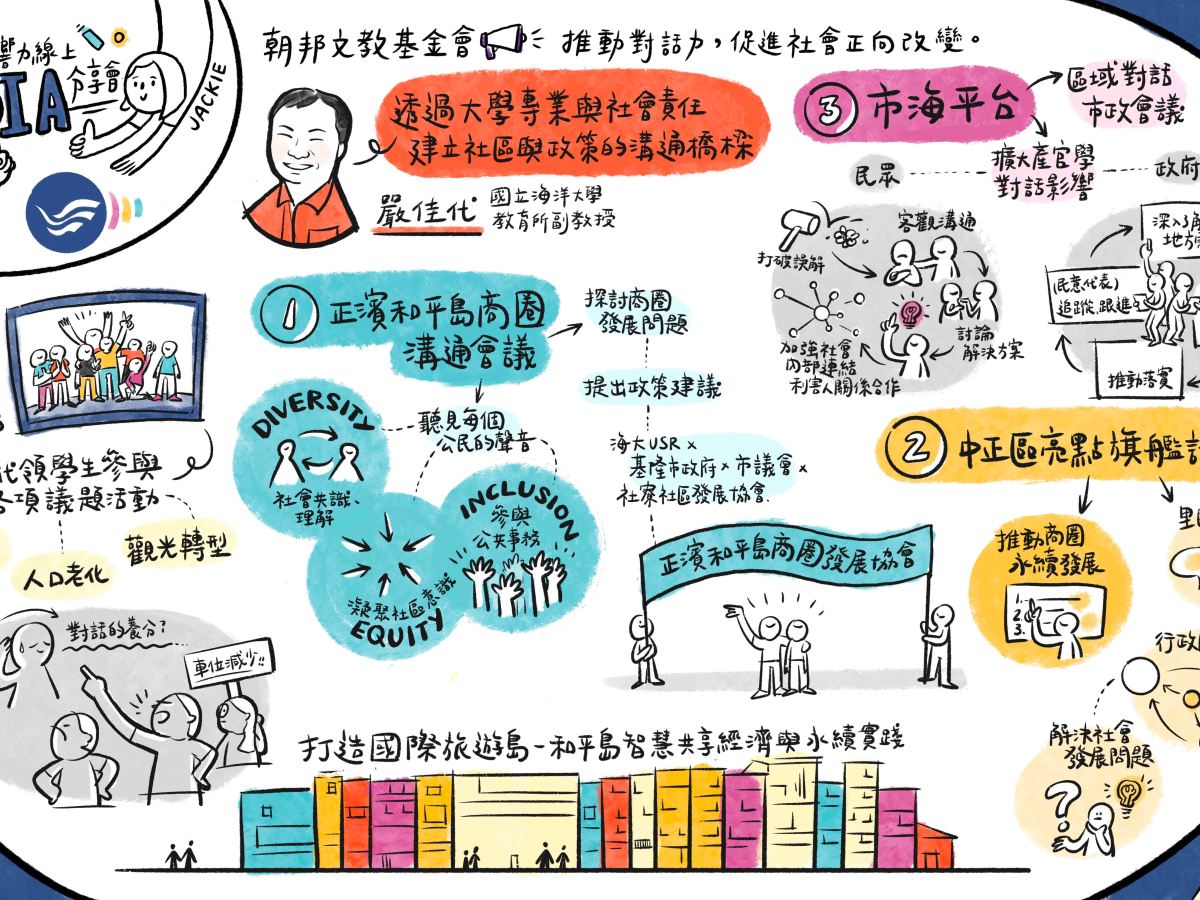 響力線上
分享會
IA
JACKIE
朝邦文教基金會 推動對話力，促進社會正向改變。
透過大學專業與社會責任
建立社區與政策的溝通橋樑
嚴佳代
國立海洋大學
教育所副教授
3 市海平台
區域對話
市政會議
擴大產官學
對話影響
民眾
政府
打破誤解
客觀溝通
討論
解決方案
加強社會
內部連結
利害人關係合作
深入了解
地方
民意代表
追蹤、跟進
推動落實
1 正濱和平島商圈
溝通會議
探討商圈
發展問題
提出政策建議
海大USR ×
基隆市政府 × 市議會 ×
社寮社區發展協會
聽見每個
公民的聲音
DIVERSITY
社會共識、
理解
INCLUSION
參與
公共事務
凝聚社區意識
EQUITY
正濱和平島商圈發展協會
2 中正區亮點旗艦計
推動商圈
永續發展
1.
2.
3.
行政
解決社會
發展問題
?
代領學生參與
各項議題活動
觀光轉型
人口老化
對話的養分?
車位減少!!
打造國際旅遊島-和平島智慧共享經濟與永續實踐